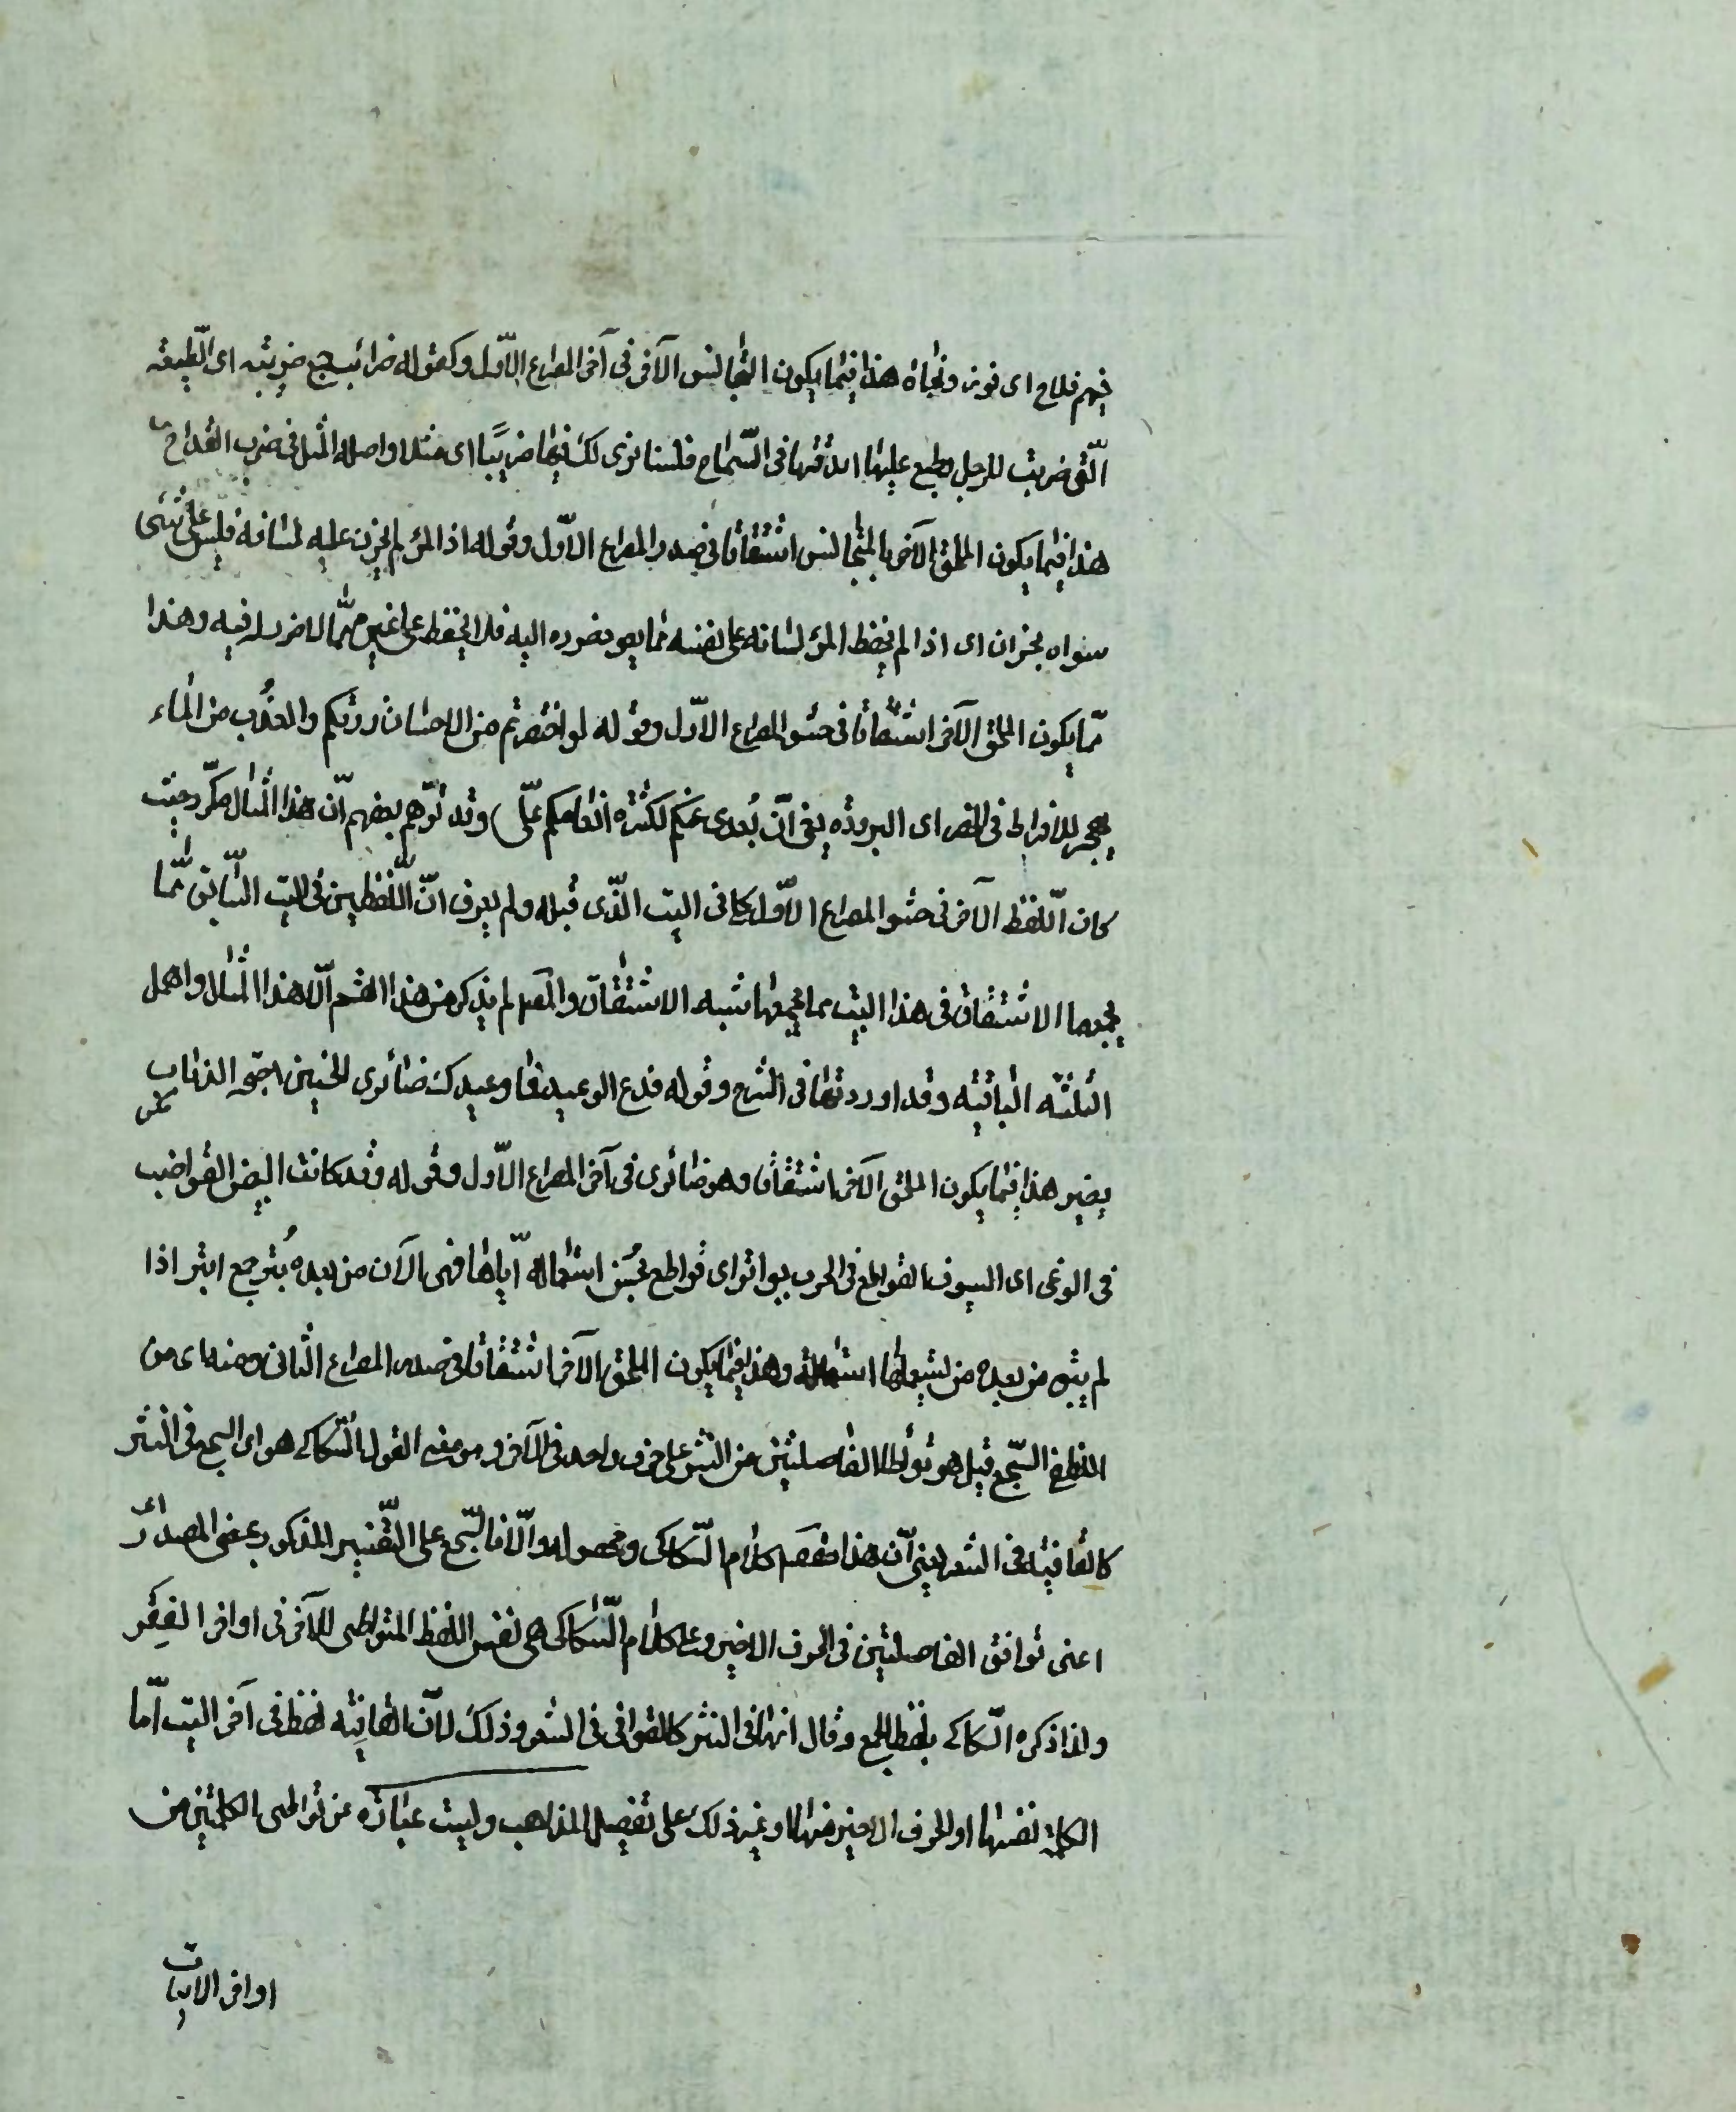 فيهم فلاح اى فوز ونجاة هذا فيما يكون المتجانس الآخر فى آخر المصراع الاوّل وكقوله ضرائب جمع ضريبة اى الطّبيعة
الّتى ضربت للرجل وطبع عليها ابدعتها فى السّماح فلسنا نرى لك فيها ضريبًا اى مثلا واصله المثل فى ضرب القداح
هذا فيما يكون الملحق الآخر بالمتجانس اشتقاقا فى صدر المصراع الاوّل وقوله اذا المرؤ لم يخزن عليه لسانه فليس على شئ
سواه بخزان اى اذا لم يحفظ المرؤ لسانه على نفسه مما يعود ضرره اليه فلا يحفظه على غيره مّما لا ضرر له فيه وهذا
مّما يكون الملحق الآخر اشتقاقا فى حشو المصراع الاوّل وقوله لو اختصرتم من الاحسان زرتكم والعذب من الماء
يهجر للافراط فى الخصر اى البرودة يعنى انّ بُعدى عنكم لكثرة انعامكم علّى وقد توّهم بعضهم انّ هذا المثال مكّرر حيث
كان اللّفظ الآخر فى حشو المصراع الاوّل كما فى البيت الّذى قبله ولم يعرف انّ اللّفظين فى البيت السّابق مّما
يجمعهما الاشتقاق فى هذا البيت مما يجمعهما شبه الاشتقاق والمص لم يذكر من هذا القسم الّا هذا المثال واهمل
الثلثة الباقية وقد اوردتها فى الشرح وقوله فدع الوعيد فما وعيدك ضائرى اطنين اجنحة الذباب
يضير هذا فيما يكون الملحق الآخر اشتقاقا وهو ضائرى فى آخر المصراع الاوّل وقوله وقد كانت البيض القواضب
فى الوغى اى السيوف القواطع فى الحرب بواتر اى قواطع بحُسن استعماله ايّاها فهى الآن من بعده بُتر جمع ابتر اذا
لم يبق من بعده من يستعملها استعماله وهذا فيما يكون الملحق الآخر اشتقاقا فى صدر المصراع الثانى ومنه اى من
اللفظى السّجع قيل هو تواطؤ الفاصلتين من النثر على حرف واحد فى الآخر وهو معنى قول السّكاكى هو اى السجع فى النثر
كالقافية فى الشعر يعنى انّ هذا مقصود كلام السّكاكى ومحصوله والّا فالسّجع على التّفسير المذكور بمعنى المصدر
اعنى توافق الفاصلتين فى الحرف الاخير وعلى كلام السّكاكى هى نفس اللفظ المتواطى للآخر فى اواخر الفِقَر
ولذا ذكره السّكاكى بلفظ الجمع وقال انها فى النثر كالقوافى فى الشعر وذلك لانّ القافية لفظ فى آخر البيت امّا
الكلمة نفسها او الحرف الاخير منها او غير ذلك على تفصيل المذاهب وليست عبارة عن تواطى الكلمتين من
اواخر الابيات